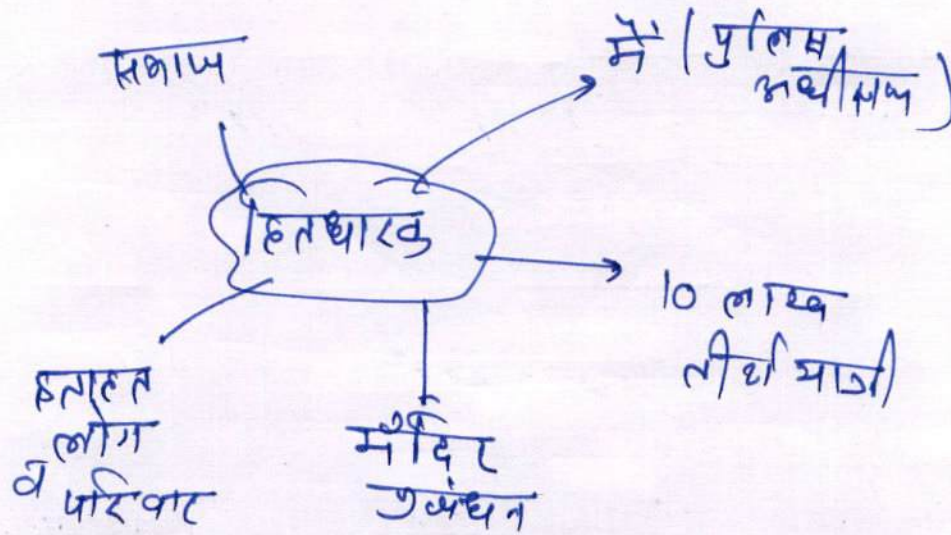 समाज
मैं (पुलिस
अधीक्षक)
हितधारक
10 लाख
तीर्थ यात्री
हताहत
लोग
व परिवार
मंदिर
प्रबंधन